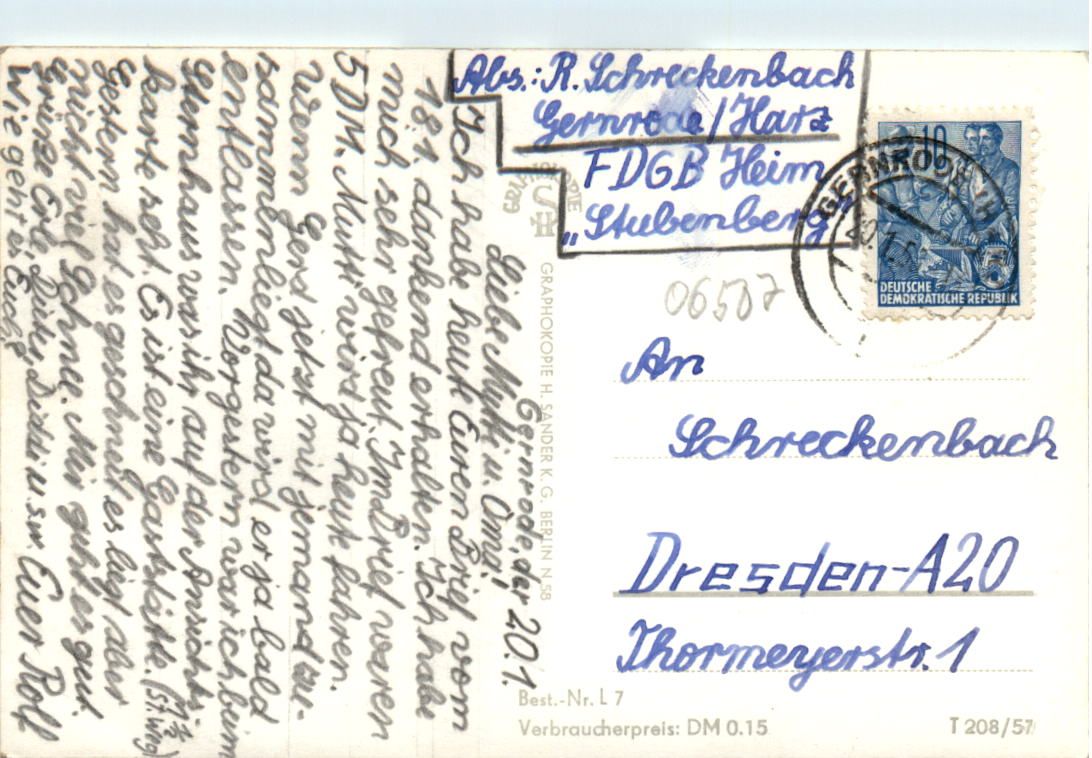 Gernrode, der 20.1.
Liebe Mutti u. Omi,
Ich habe heute Euren Brief vom
18.1. dankend erhalten. Ich habe
mich sehr gefreut. Im Brief waren
5 DM. Mutti wird ja heut fahren.
Wenn Gerd jetzt mit jemand zu-
sammenliegt da wird er ja bald
entlassen. Vorgestern war ich beim
Sternhaus was ihr auf der Ansichts-
karte seht. Es ist eine Gaststätte.
Gestern hat es geschneit es liegt aber
nicht viel Schnee. Mir geht es gut.
Wie geht es Euch?
Euer Rolf
Abs.: R. Schreckenbach
Gernrode/Harz
FDGB Heim
„Stubenberg"
06507
An
Schreckenbach
Dresden-A20
Thormeyerstr. 1
10
DEUTSCHE
DEMOKRATISCHE REPUBLIK
GERNRODE
GRAPHOKOPIE
H
GRAPHOKOPIE H. SANDER K. G. BERLIN N 58
Best.-Nr. L 7
Verbraucherpreis: DM 0.15
T 208/57